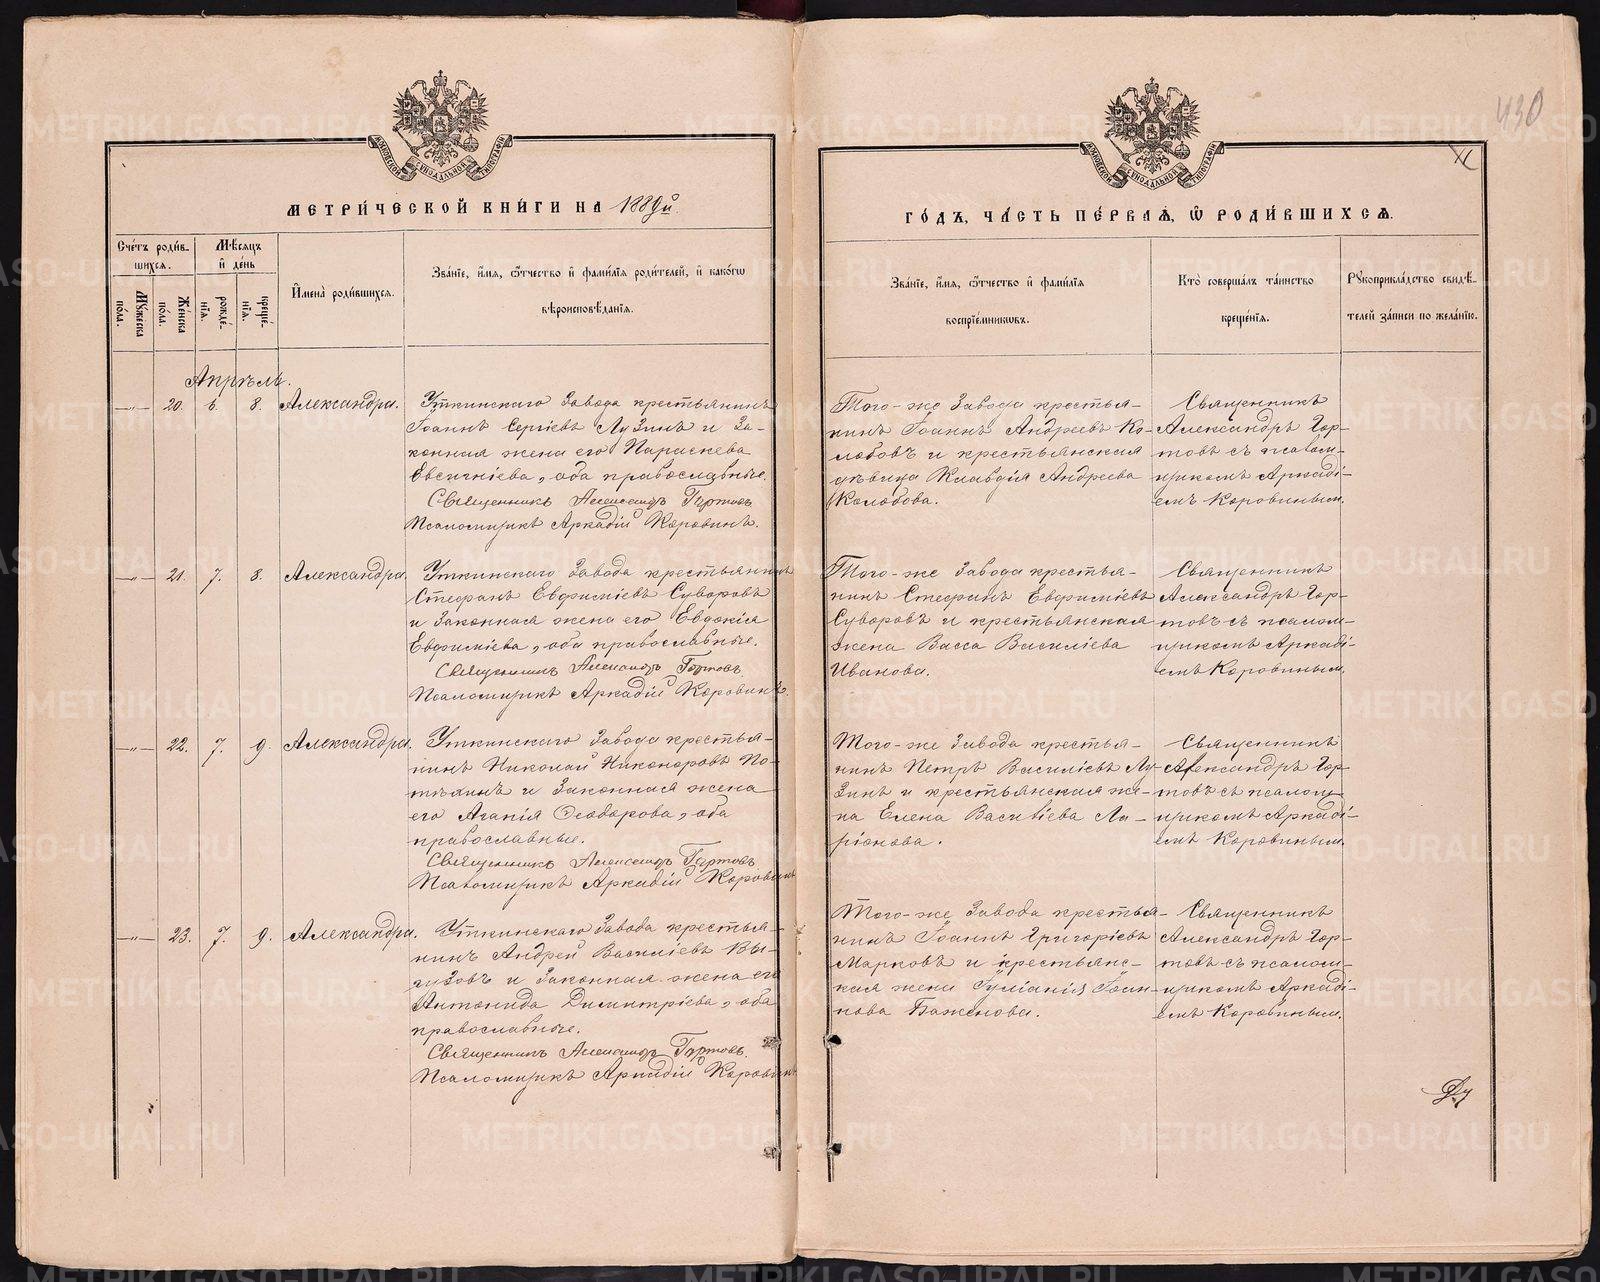 430
МОСКОВСКОЙ СѴНОДАЛЬНОЙ ТИПОГРАФІИ
МОСКОВСКОЙ СѴНОДАЛЬНОЙ ТИПОГРАФІИ
МЕТРИ́ЧЕСКОЙ КНИ́ГИ НА 1889й
ГО́ДЪ, ЧА́СТЬ ПЕ́РВАѦ, Ѡ РОДИ́ВШИХСѦ.
Сче́тъ роди́в-
шихсѧ.
Мꙋ́жеска по́ла.
Же́нска по́ла.
Мѣ́сѧцъ
и҆ де́нь
рожде́-
нїѧ.
креще́-
нїѧ.
И҆мена̀ роди́вшихсѧ.
Зва́нїе, и҆́мѧ, ѻ҆́тчество и҆ фами́лїѧ роди́телей, и҆ како́гѡ
вѣроисповѣ́данїѧ.
Зва́нїе, и҆́мѧ, ѻ҆́тчество и҆ фами́лїѧ
воспрїе́мникѡвъ.
Кто̀ соверша́лъ та́инство
креще́нїѧ.
Рꙋкоприкла́дство свидѣ́-
телей за́писи по жела́нїю.
Апрѣль.
—„— 20. 6. 8. Александра.
Уткинскаго Завода крестьянинъ
Іоаннъ Сергіевъ Лузинъ и За-
конная жена его Параскева
Евсигніева, оба православные.
Священникъ Александръ Гортовъ
Псаломщикъ Аркадій Коровинъ.
Того-же Завода крестья-
нинъ Іоаннъ Андреевъ Ко-
лобовъ и крестьянская
дѣвица Клавдія Андреева
Колобова.
Священникъ
Александръ Гор-
товъ съ псалом-
щикомъ Аркаді-
емъ Коровинымъ.
—„— 21. 7. 8. Александра.
Уткинскаго Завода крестьянинъ
Стефанъ Евфиміевъ Суворовъ
и Законная жена его Евдокія
Евфиміева, оба православные.
Священникъ Александръ Гортовъ
Псаломщикъ Аркадій Коровинъ.
Того-же Завода крестья-
нинъ Стефанъ Евфиміевъ
Суворовъ и крестьянская
жена Васса Василіева
Иванова.
Священникъ
Александръ Гор-
товъ съ псалом-
щикомъ Аркаді-
емъ Коровинымъ.
—„— 22. 7. 9. Александра.
Уткинскаго Завода крестья-
нинъ Николай Никаноровъ По-
тѣхинъ и Законная жена
его Агапія Ѳеодорова, оба
православные.
Священникъ Александръ Гортовъ
Псаломщикъ Аркадій Коровинъ
Того-же Завода крестья-
нинъ Петръ Василіевъ Лу-
Зинъ и крестьянская же-
на Елена Василіева Ла-
ріонова.
Священникъ
Александръ Гор-
товъ съ псалом-
щикомъ Аркаді-
емъ Коровинымъ.
—„— 23. 7. 9. Александра.
Уткинскаго Завода крестья-
нинъ Андрей Василіевъ Вы-
гузовъ и Законная жена его
Антонида Димитріева, оба
православные.
Священникъ Александръ Гортовъ.
Псаломщикъ Аркадій Коровинъ
Того-же Завода крестья-
нинъ Іоаннъ Григоріевъ
Марковъ и крестьянс-
кая жена Іуліанія Іоан-
нова Баженова.
Священникъ
Александръ Гор-
товъ съ псалом-
щикомъ Аркаді-
емъ Коровинымъ.
METRIKI.GASO-URAL.RU